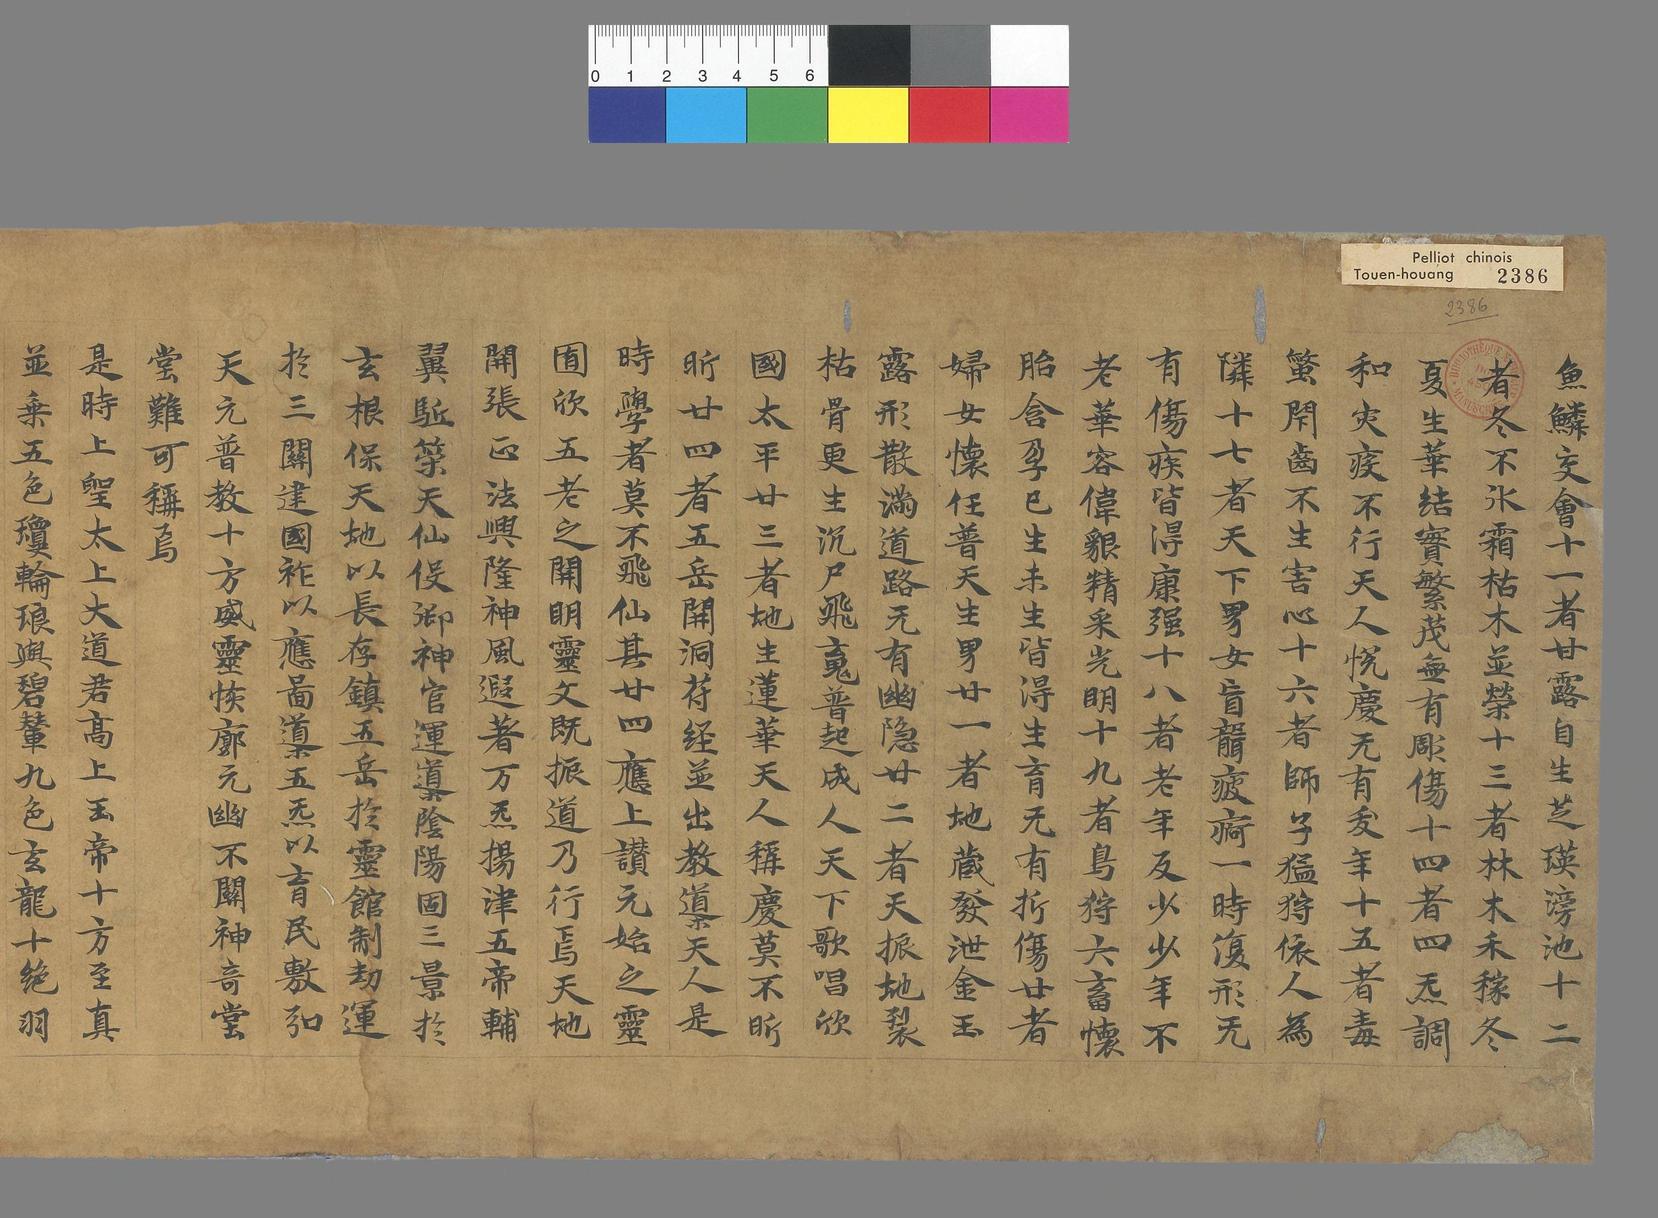 0 1 2 3 4 5 6
Pelliot chinois
Touen-houang 2386
2386
魚鱗交會十一者甘露自生芝瑛滂池十二
者冬不氷霜枯木並榮十三者林木禾稼冬
夏生華結實繁茂無有彫傷十四者四炁調
和灾疾不行天人悅慶无有夭年十五者毒
螫閇齒不生害心十六者師子猛狩依人為
隣十七者天下男女盲聾疲痾一時復形无
有傷疾皆淂康强十八者老年反少少年不
老華容偉貌精采光明十九者鳥狩六畜懷
胎含孕已生未生皆淂生育无有折傷廿者
婦女懷任普天生男廿一者地藏發泄金玉
露形散滿道路无有幽隐廿二者天振地裂
枯骨更生沉尸飛䰟普起成人天下歌唱欣
國太平廿三者地生蓮華天人稱慶莫不昕
昕廿四者五岳開洞苻經並出教導天人是
時學者莫不飛仙其廿四應上讚元始之靈
圖欣五老之開明靈文既振道乃行焉天地
開張正法興隆神風遐著万炁揚津五帝輔
翼駈策天仙伇御神官運導陰陽固三景於
玄根保天地以長存鎮五岳於靈館制劫運
於三關建國祚以應啚導五炁以育民敷弘
天元普教十方威靈恢廓元幽不關神奇堂
堂難可稱焉
是時上聖太上大道君高上玉帝十方至真
並乗五色瓊輪琅輿碧輦九色玄龍十絕羽